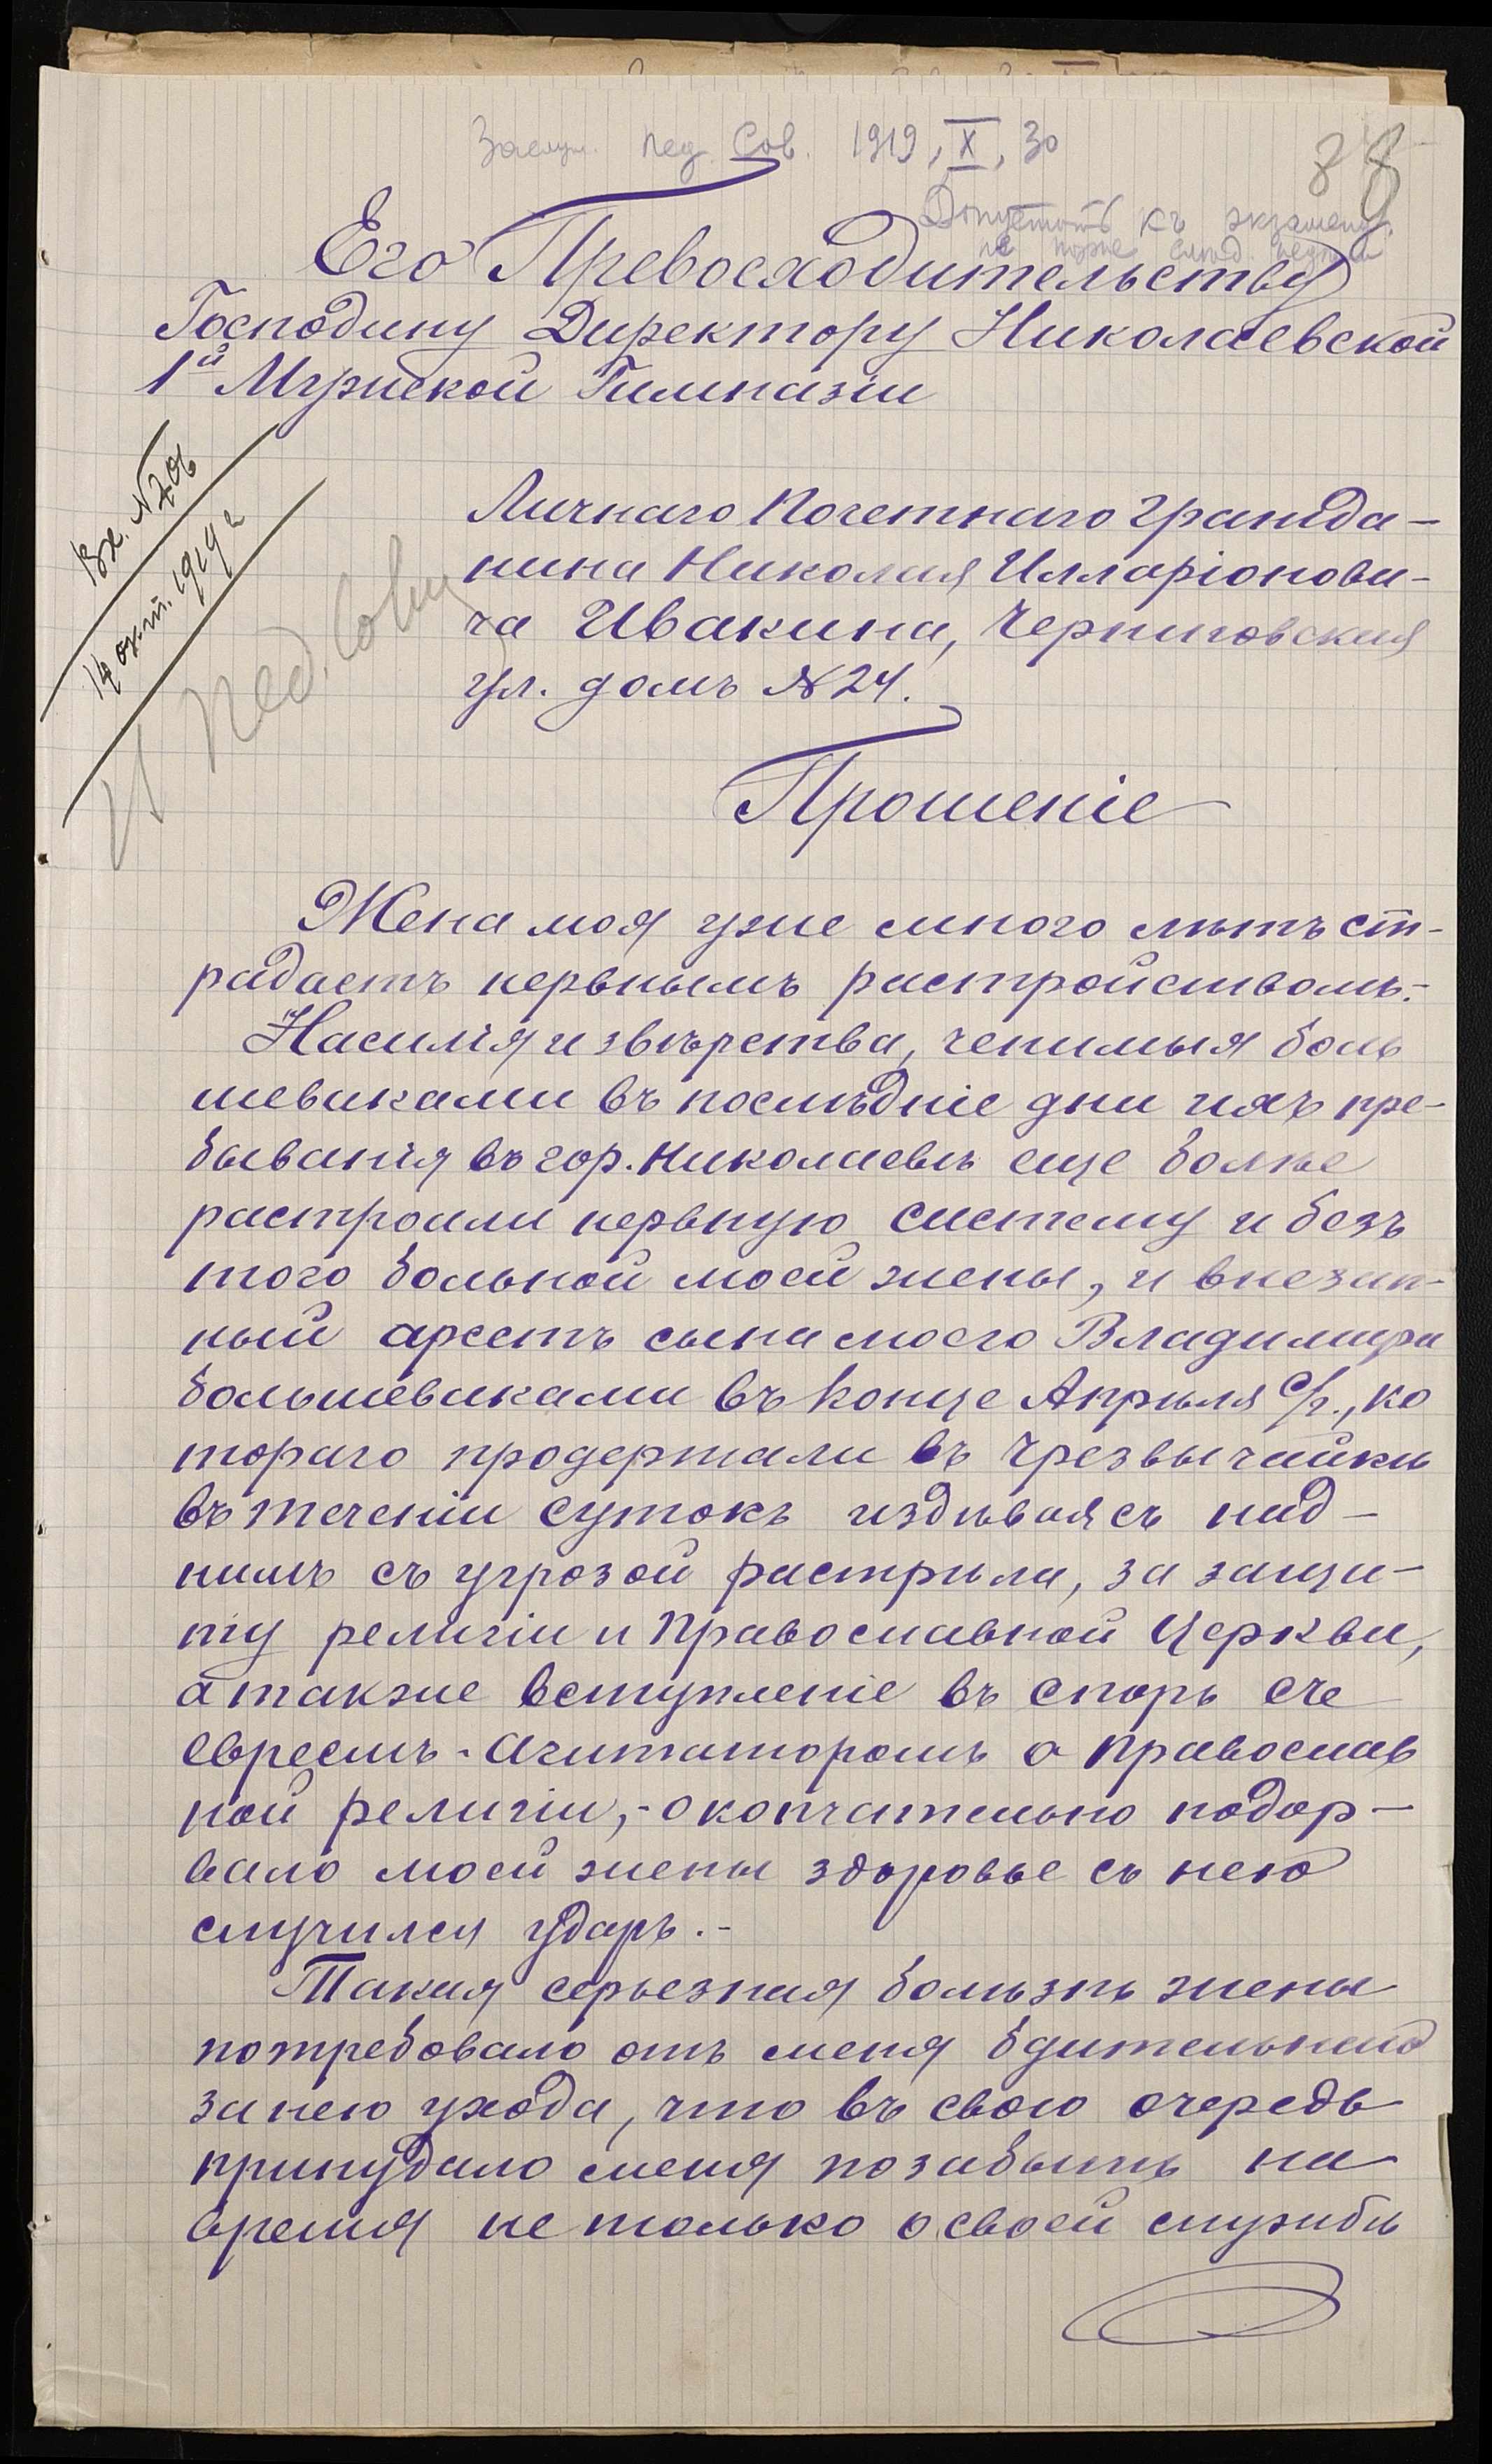 Заслуш. Пед. Сов. 1919, X, 30
88
Допустить къ экзамену
не позже след. недели
Его Превосходительству
Господину Директору Николаевской
1й Мужской Гимназіи
Вх. №706
14 окт. 1919 г
Пед. Сов
Личнаго Почетнаго Гражда-
нина Николая Илларіонови-
ча Ивакина, Черниговская
ул. домъ №24.
Прошеніе
Жена моя уже много лѣтъ ст-
радаетъ нервнымъ растройствомъ.-
Насилія и звѣрства, ченимыя боль
шевиками въ послѣдніе дни ихъ пре-
быванія въ гор. Николаевѣ еще болѣе
растроили нервную систему и безъ
того больной моей жены, и внезап-
ный арестъ сына моего Владимира
большевиками въ конце Апрѣля с/г., ко
тораго продержали въ Чрезвычайкѣ
въ теченіи сутокъ издѣваясь над-
нимъ съ угрозой растрѣла, за защи-
ту религіи и Православной Церкви,
а также вступленіе въ споръ съ
евреемъ-агитаторомъ о Православ
ной религіи,- окончательно подор-
вало моей жены здоровье съ нею
случился ударъ.-
Такая серьезная болѣзнь жены
потребовало отъ меня бдительнаго
за нею ухода, что въ свою очередь
принудило меня позабыть на
время не только о своей службѣ